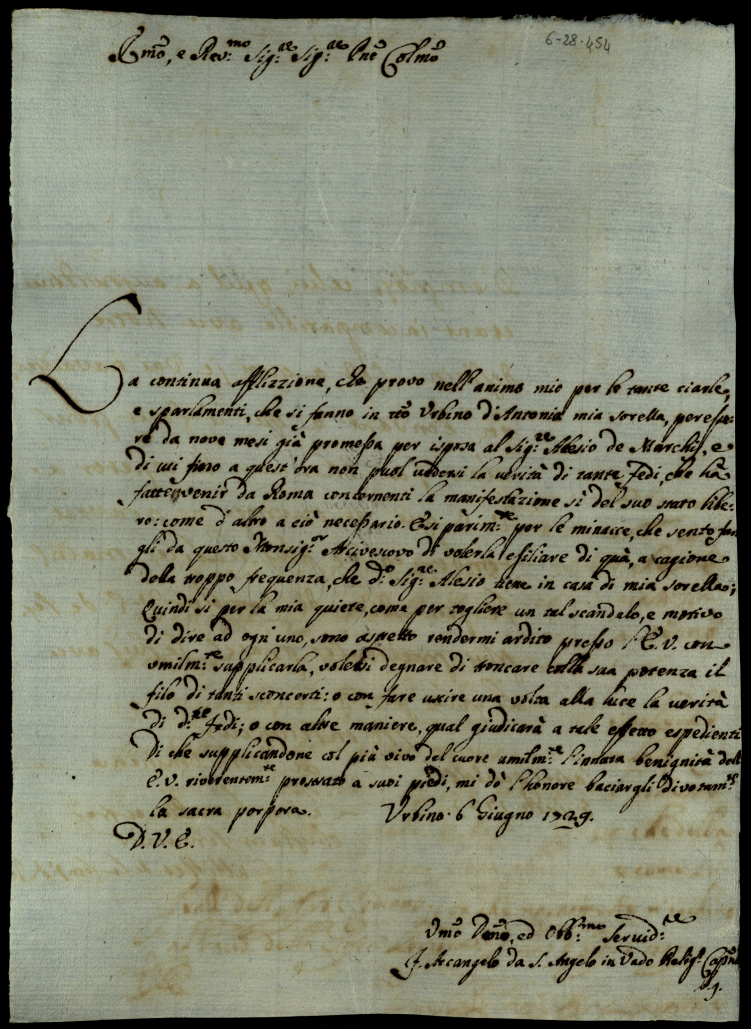 6-28-454
Emo, e Rev.mo Sig.re Sig.re Pne Colmo
La continua afflizzione, che provo nell'animo mio per le tante ciarle,
e sparlamenti, che si fanno in tto Urbino d'Antonia mia sorella, per esse-
re da nove mesi già promessa per isposa al Sig.re Alesio de Marchis, e
di cui fino a quest'ora non puol vedersi la verità di tante Fedi, che hà
fatte venir da Roma concernenti la manifestazione sì del suo stato libe-
ro: come d'altro a ciò necessario. E sì parim.te per le minacce, che sento far
gli da questo Monsig.r Arcivescovo di volerla esiliare di quà, a cagione
della troppo frequenza, che d.o Sig.re Alesio tiene in casa di mia sorella;
Quindi sì per la mia quiete, come per togliere un tal scandalo, e motivo
di dire ad ogn'uno, sono astretto rendermi ardito presso l'E. V. con
umilm.te supplicarla, volersi degnare di troncare colla sua potenza il
filo di tanti sconcerti: o con fare uscire una volta alla luce la verità
di d.te Fedi; o con altre maniere, qual giudicarà a tale effetto espedienti
Di che supplicandone col più vivo del cuore umilm.te l'innata benignità dell'
E. V. riverentem.te prostrato a suoi piedi, mi dò l'honore baciargli divotam.te
la sacra porpora. Urbino 6 Giugno 1729.
D. V. E.
Umo Dmo, ed Obb.mo Servid.re
F. Arcangelo da S. Angelo in Vado Relig.o Capno